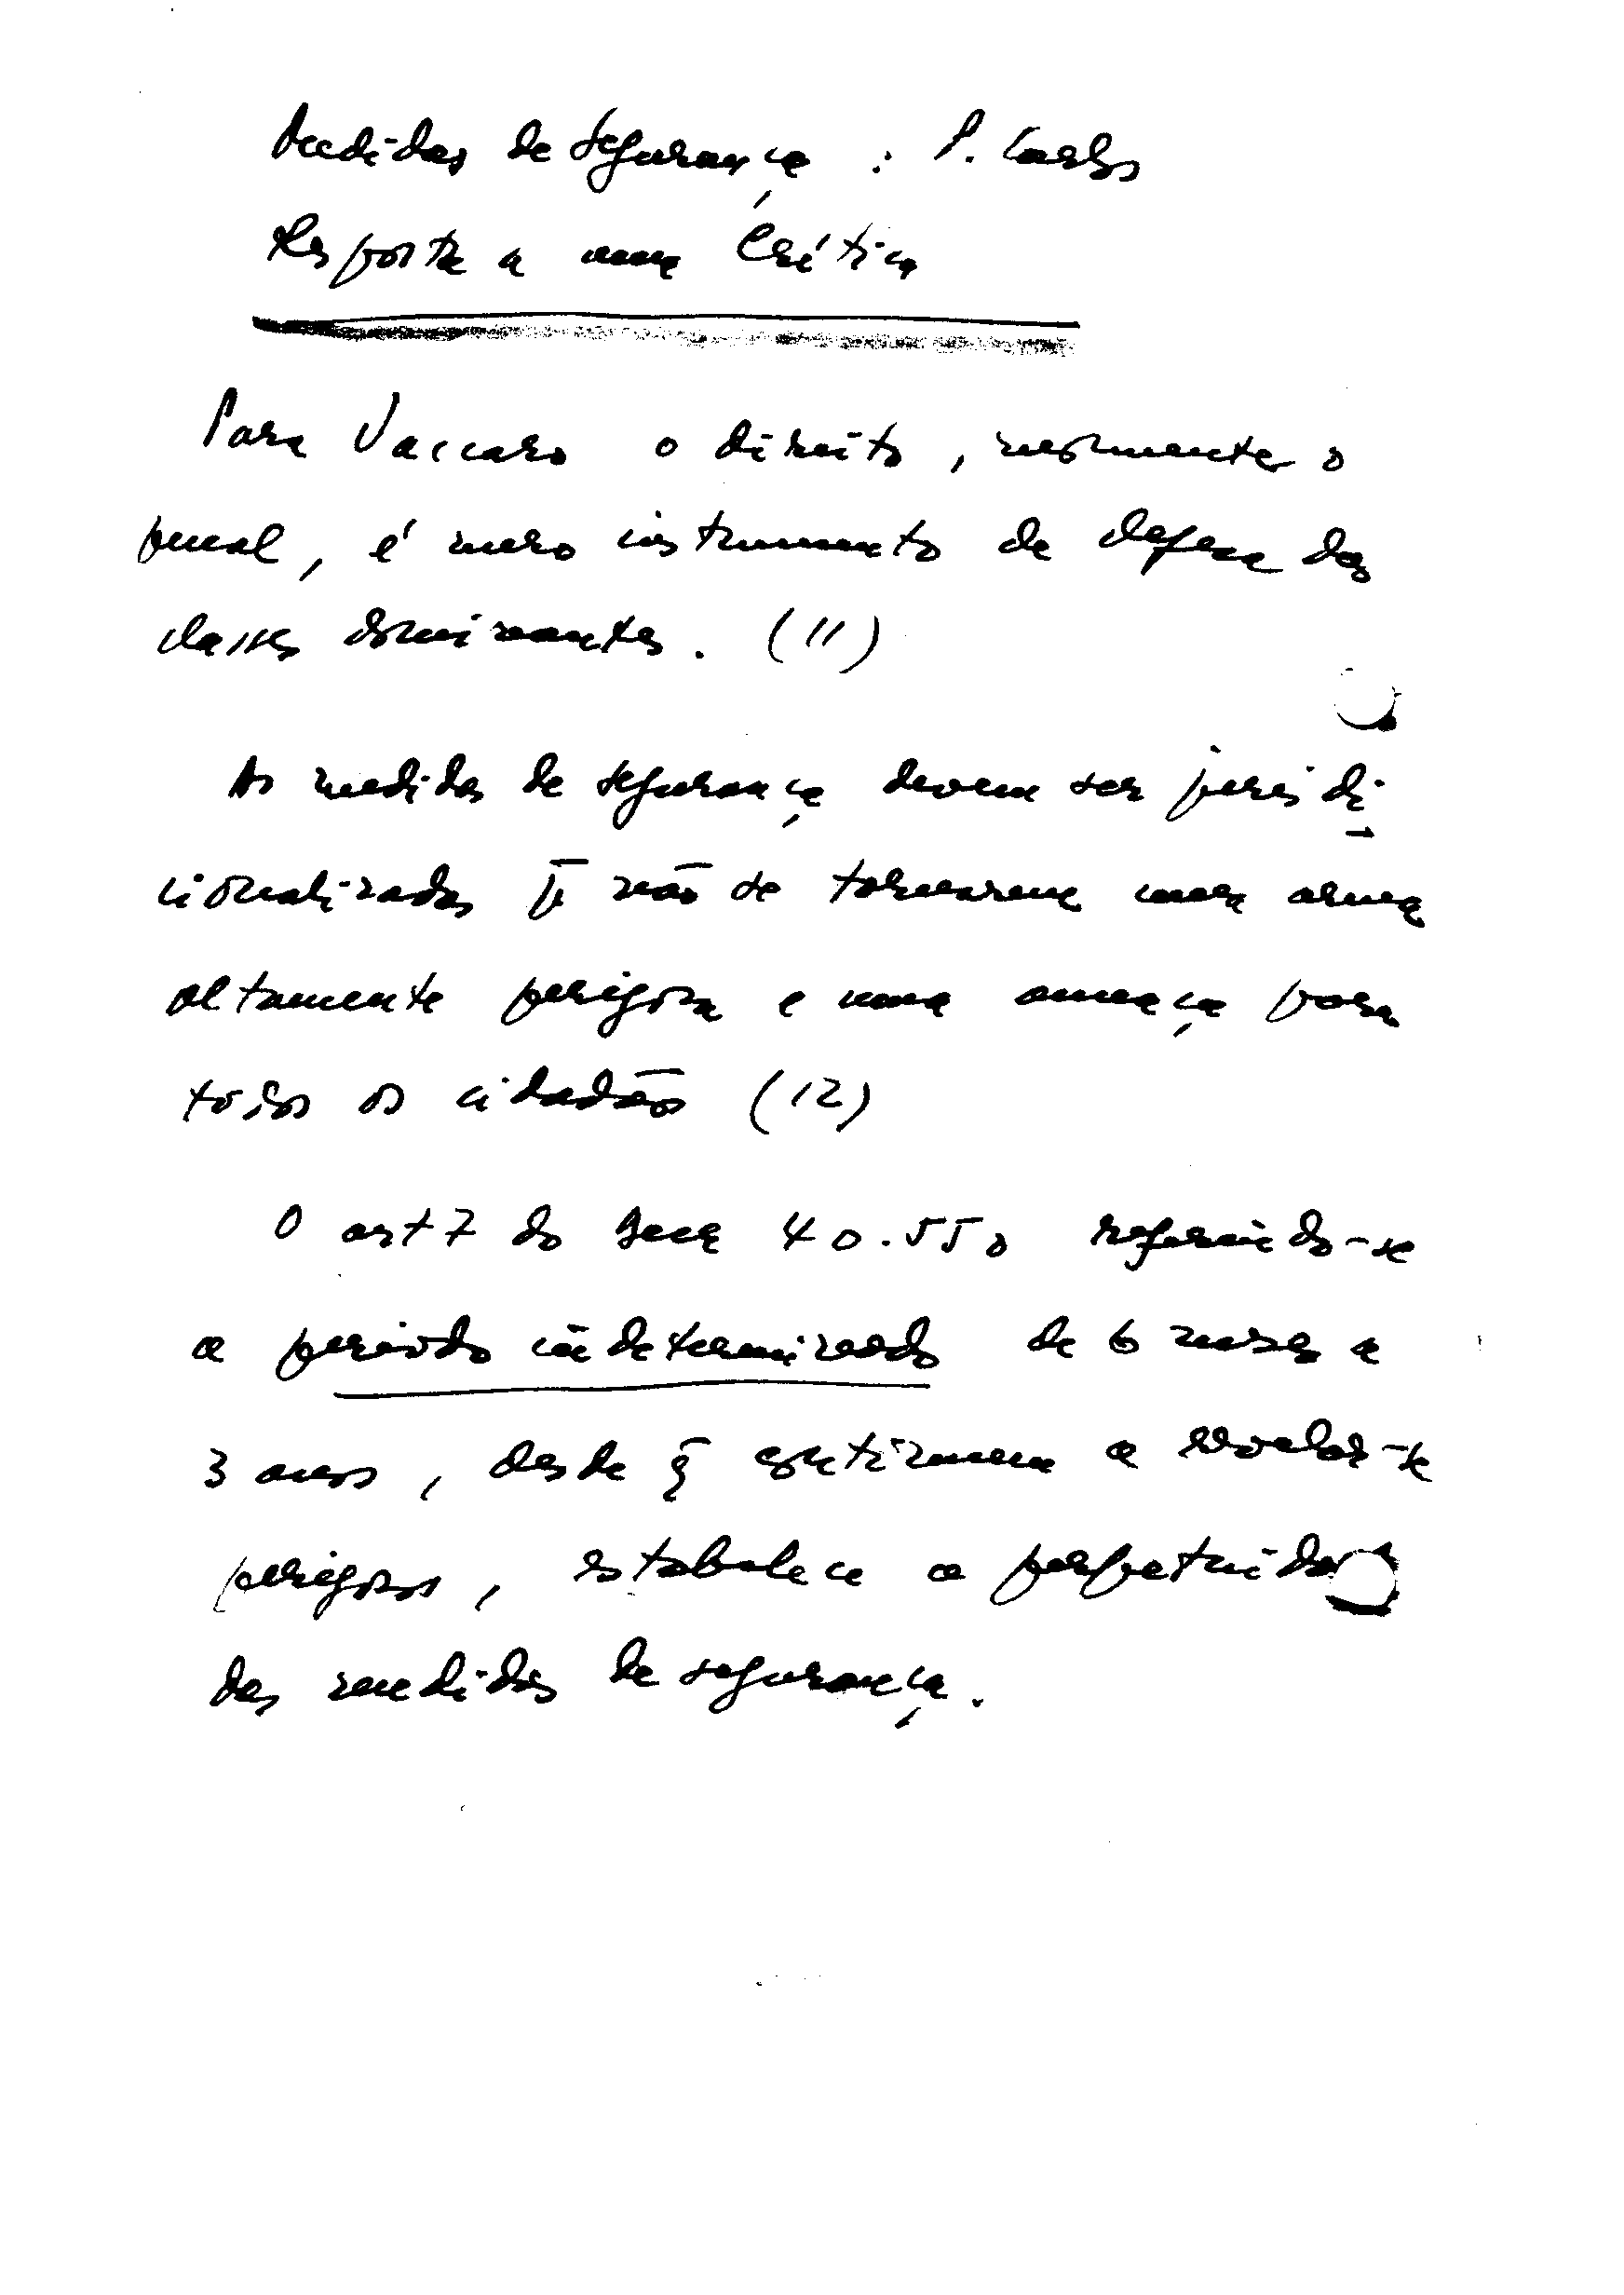 Medidas de Segurança : P. Carlos
Resposta a uma Crítica
Para Vaccaro o direito, mormente o
penal, é mero instrumento de defesa das
classes dominantes. (11)
As medidas de segurança devem ser jurisdi-
cionalizadas p̄ não se tornarem uma arma
altamente perigosa e uma ameaça para
todos os cidadãos (12)
O art 7 do 40.550 referindo-se
a período indeterminado de 6 meses a
3 anos, desde q̃ continuem a revelar-se
perigosos, estabelece a perpetuidade
das medidas de segurança.